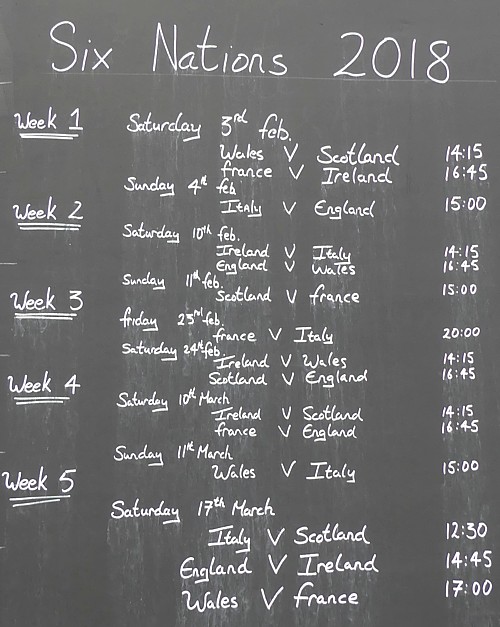 Six Nations 2018
Week 1 Saturday 3rd feb.
Wales V Scotland 14:15
france V Ireland 16:45
Sunday 4th feb
Italy V England 15:00
Week 2
Saturday 10th feb.
Ireland V Italy 14:15
England V Wales 16:45
Sunday 11th feb.
Scotland V france 15:00
Week 3
friday 23rd feb.
france V Italy 20:00
Saturday 24th feb.
Ireland V Wales 14:15
Scotland V England 16:45
Week 4
Saturday 10th March
Ireland V Scotland 14:15
france V England 16:45
Sunday 11th March
Wales V Italy 15:00
Week 5
Saturday 17th March
Italy V Scotland 12:30
England V Ireland 14:45
Wales V france 17:00